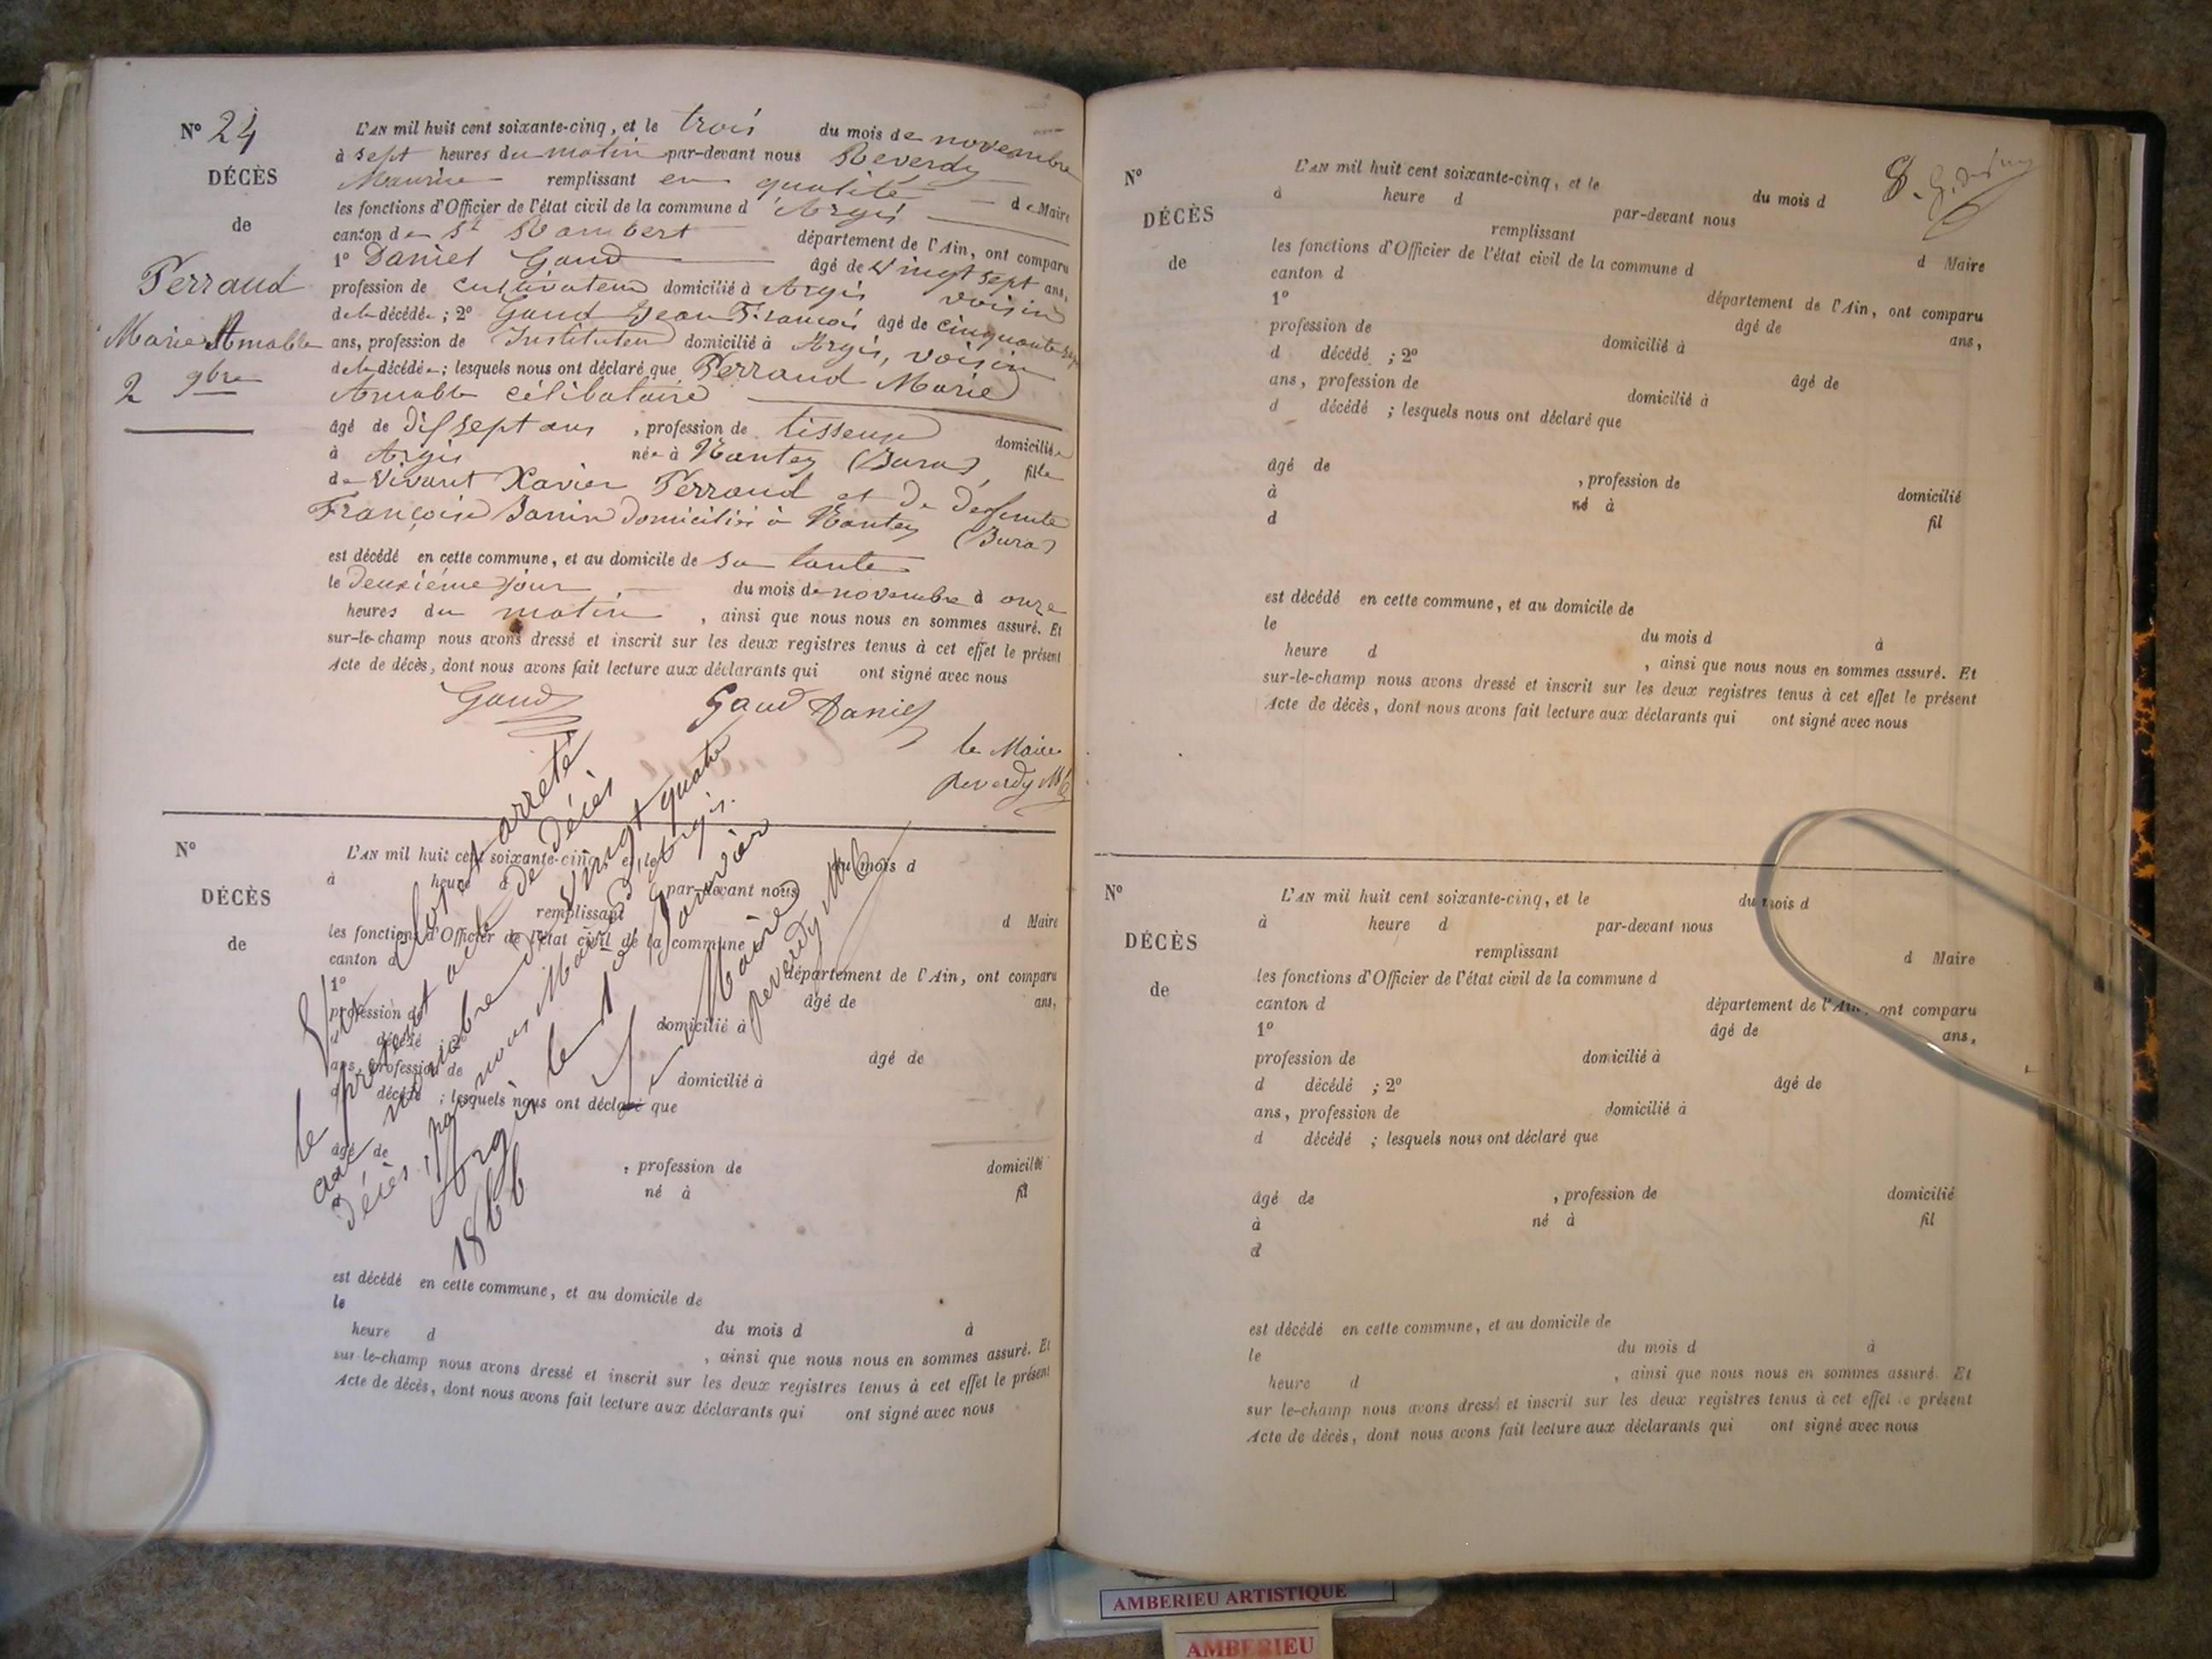 N° 24
DÉCÈS
de
Perraud
Marie Amable
2 9bre
L'AN mil huit cent soixante-cinq, et le trois du mois de novembre
à sept heures du matin par-devant nous Reverdy
Maurice remplissant en qualité de Maire
les fonctions d'Officier de l'état civil de la commune d'Argis
canton de St Rambert département de l'Ain, ont comparu
1° Daniel Gaud âgé de vingt sept ans,
profession de cultivateur domicilié à Argis voisin
de la décédée; 2° Gaud Jean François âgé de cinquante sept
ans, profession de Instituteur domicilié à Argis, voisin
de la décédée; lesquels nous ont déclaré que Perraud Marie
Amable célibataire
âgé de dix sept ans, profession de tisseuse domiciliée
à Argis née à Nantey (Jura), fille
de Vivant Xavier Perraud et de defunte
Françoise Janin domiciliés à Nantey (Jura)
est décédé en cette commune, et au domicile de sa tante
le deuxième jour du mois de novembre à onze
heures du matin, ainsi que nous nous en sommes assuré. Et
sur-le-champ nous avons dressé et inscrit sur les deux registres tenus à cet effet le présent
Acte de décès, dont nous avons fait lecture aux déclarants qui ont signé avec nous
Gaud Gaud Daniel
le Maire
Reverdy Mce
N°
DÉCÈS
de
L'AN mil huit cent soixante-cinq, et le du mois d
à heure d par-devant nous
remplissant d Maire
les fonctions d'Officier de l'état civil de la commune
canton d département de l'Ain, ont comparu
1° âgé de ans,
profession de domicilié à
d décédé ; 2° âgé de
ans, profession de domicilié à
d décédé ; lesquels nous ont déclaré que
âgé de , profession de domicilié
né à fil
est décédé en cette commune, et au domicile de
le du mois d à
heure d , ainsi que nous nous en sommes assuré. Et
sur-le-champ nous avons dressé et inscrit sur les deux registres tenus à cet effet le présent
Acte de décès, dont nous avons fait lecture aux déclarants qui ont signé avec nous
clos et arreté
le présent acte de décès
au nombre de vingt quatre
décès, par nous Maire d'Argis.
Argis le 1er Janvier
1866
Le Maire
Reverdy Mce
N°
DÉCÈS
de
L'AN mil huit cent soixante-cinq, et le du mois d
à heure d par-devant nous
remplissant d Maire
les fonctions d'Officier de l'état civil de la commune d
canton d département de l'Ain, ont comparu
1° âgé de ans,
profession de domicilié à
d décédé ; 2° âgé de
ans, profession de domicilié à
d décédé ; lesquels nous ont déclaré que
âgé de , profession de domicilié
à né à fil
d
est décédé en cette commune, et au domicile de
le du mois d à
heure d , ainsi que nous nous en sommes assuré. Et
sur-le-champ nous avons dressé et inscrit sur les deux registres tenus à cet effet le présent
Acte de décès, dont nous avons fait lecture aux déclarants qui ont signé avec nous
N°
DÉCÈS
de
L'AN mil huit cent soixante-cinq, et le du mois d
à heure d par-devant nous
remplissant d Maire
les fonctions d'Officier de l'état civil de la commune d
canton d département de l'Ain, ont comparu
1° âgé de ans,
profession de domicilié à
d décédé ; 2° âgé de
ans, profession de domicilié à
d décédé ; lesquels nous ont déclaré que
âgé de , profession de domicilié
à né à fil
d
est décédé en cette commune, et au domicile de
le du mois d à
heure d , ainsi que nous nous en sommes assuré. Et
sur le-champ nous avons dressé et inscrit sur les deux registres tenus à cet effet le présent
Acte de décès, dont nous avons fait lecture aux déclarants qui ont signé avec nous
AMBERIEU ARTISTIQUE
AMBERIEU